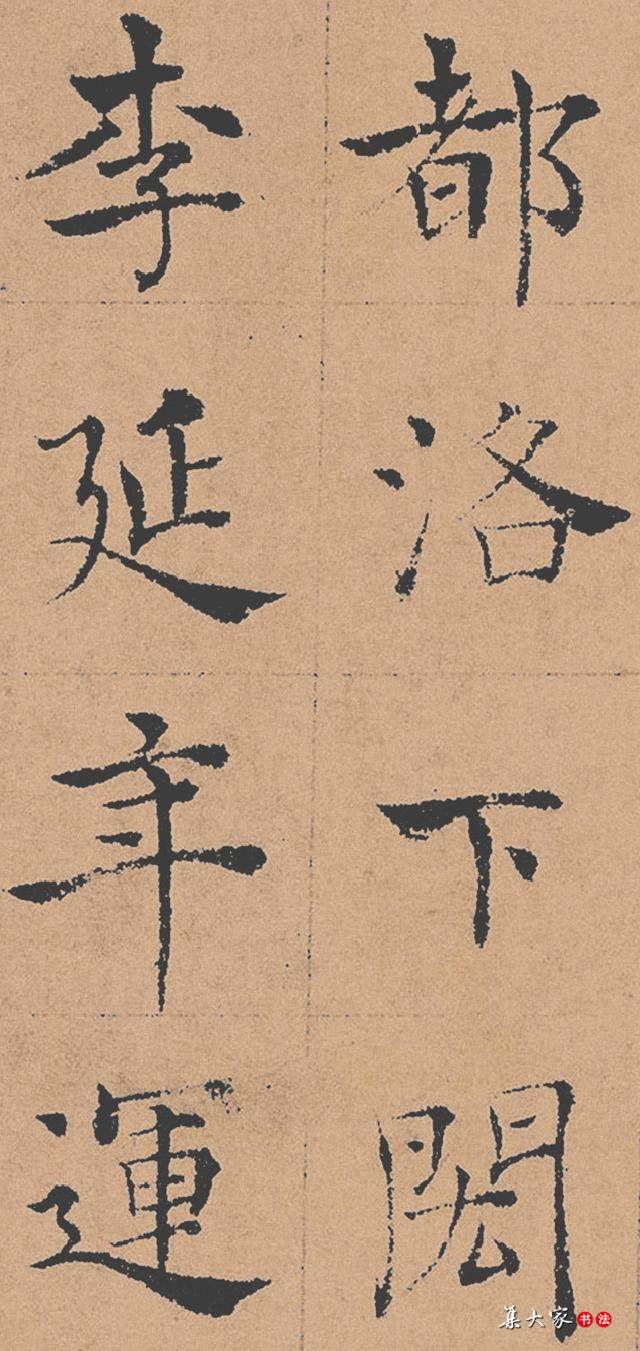 都洛下閎
李延年運
集大家书法